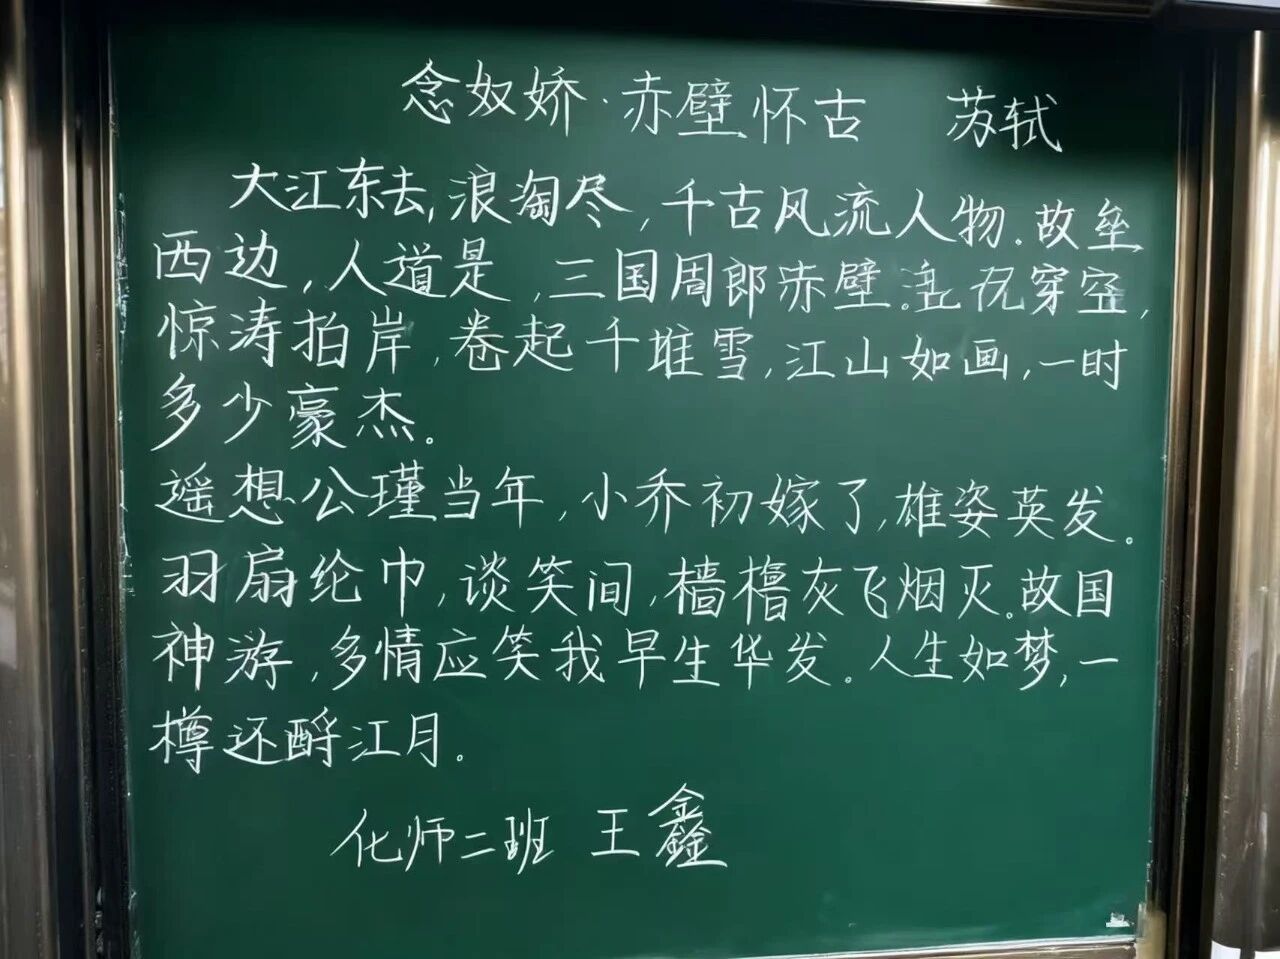 念奴娇·赤壁怀古 苏轼
大江东去,浪淘尽,千古风流人物.故垒
西边,人道是,三国周郎赤壁.穿空,
惊涛拍岸,卷起千堆雪,江山如画,一时
多少豪杰。
遥想公瑾当年,小乔初嫁了,雄姿英发。
羽扇纶巾,谈笑间,樯橹灰飞烟灭.故国
神游,多情应笑我早生华发。人生如梦,一
樽还酹江月。
化师二班 王鑫